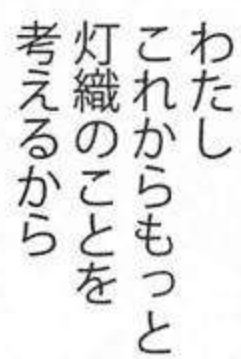 わたし
これからもっと
灯織のことを
考えるから